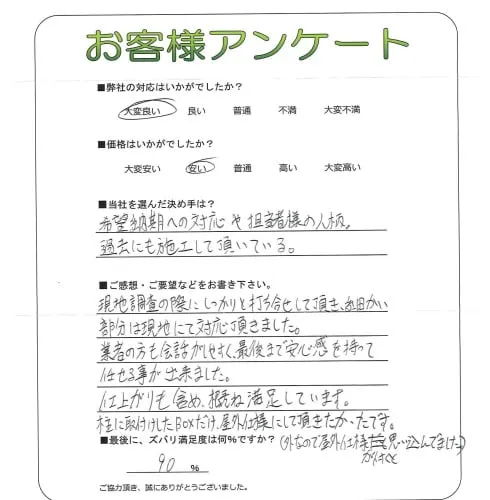 お客様アンケート
■弊社の対応はいかがでしたか?
大変良い 良い 普通 不満 大変不満
■価格はいかがでしたか?
大変安い 安い 普通 高い 大変高い
■当社を選んだ決め手は?
希望納期への対応や担当者様の人柄。
過去にも施工して頂いている。
■ご感想・ご要望などをお書き下さい。
現地調査の際にしっかりと打ち合せして頂き、細かい
部分は現地にて対応頂きました。
業者の方も会話がしやすく、最後まで安心感を持って
任せる事が出来ました。
仕上がりも含め、概ね満足しています。
柱に取付けしたBOXだけ、屋外仕様にして頂きたかったです。
■最後に、ズバリ満足度は何%ですか?
(外なので屋外仕様 思い込んでました)
90 %
ご協力頂き、誠にありがとうございました。